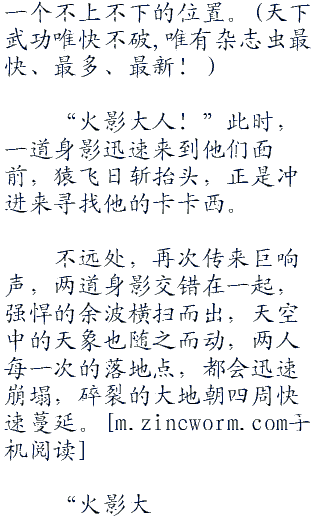 一个不上不下的位置。(天下
武功唯快不破,唯有杂志虫最
快、最多、最新！)
“火影大人！”此时，
一道身影迅速来到他们面
前，猿飞日斩抬头，正是冲
进来寻找他的卡卡西。
不远处，再次传来巨响
声，两道身影交错在一起，
强悍的余波横扫而出，天空
中的天象也随之而动，两人
每一次的落地点，都会迅速
崩塌，碎裂的大地朝四周快
速蔓延。[m.zincworm.com手
机阅读]
“火影大